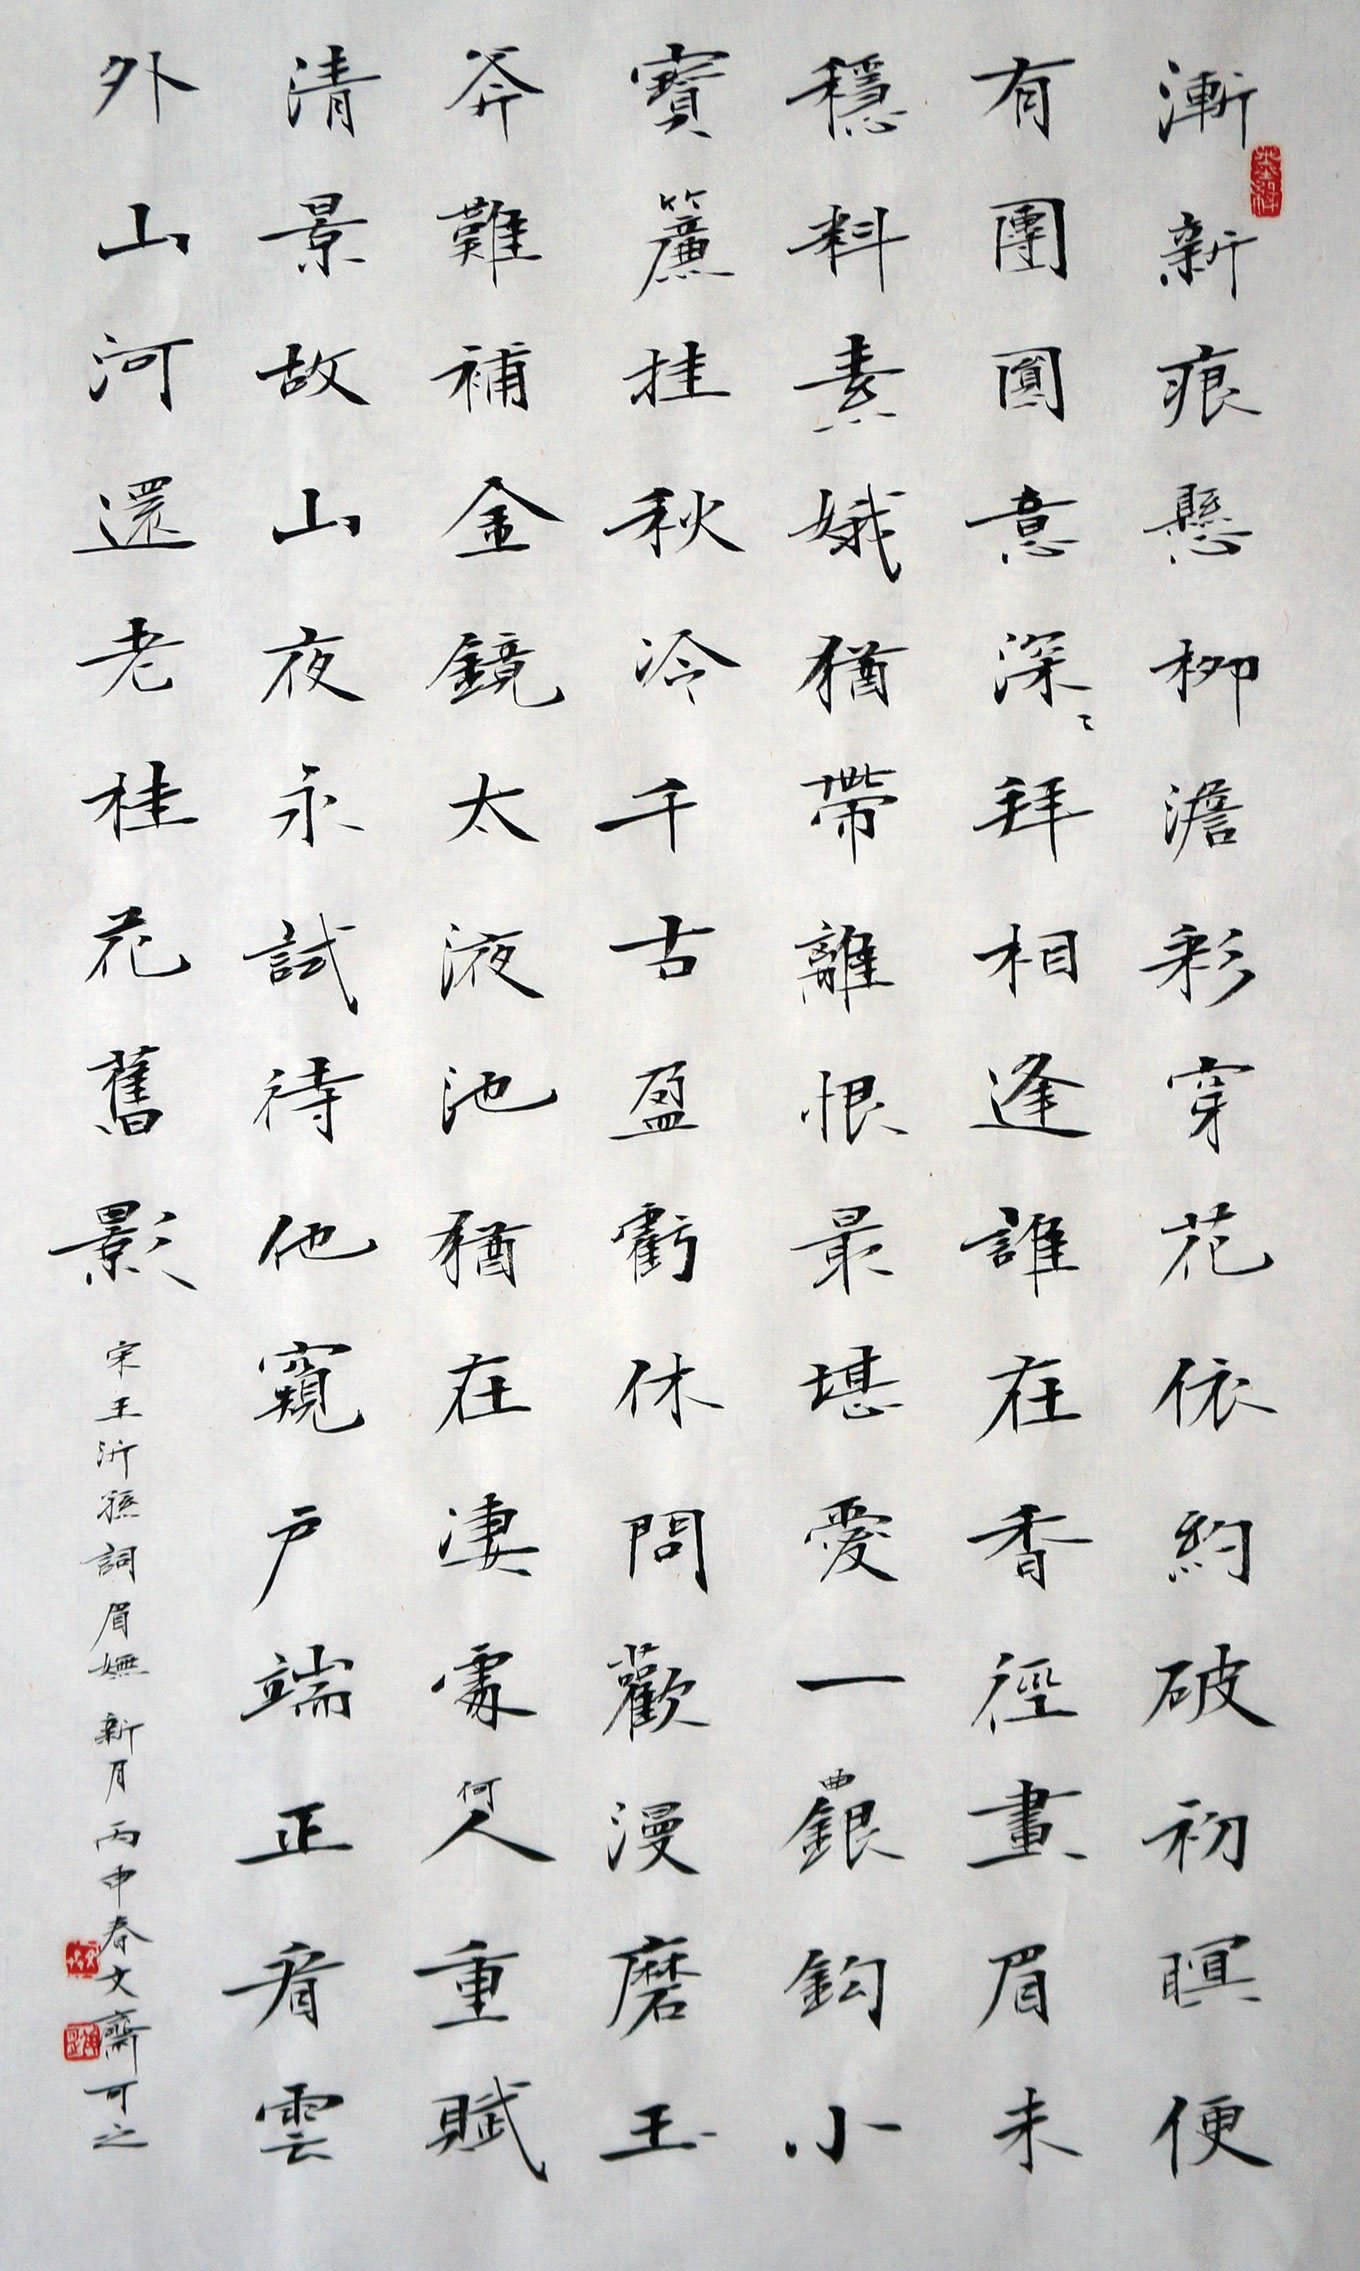 漸新痕懸柳澹彩穿花依約破初暝便
有團圓意深〻拜相逢誰在香徑畫眉未
穩料素娥猶帶離恨最堪愛一曲銀鈎小
寶簾挂秋冷千古盈虧休問歎漫磨玉
斧難補金鏡太液池猶在淒處何人重賦
清景故山夜永試待他窺户端正看雲
外山河還老桂花舊影
宋王沂孫詞眉嫵 新月 丙申春文齋可之